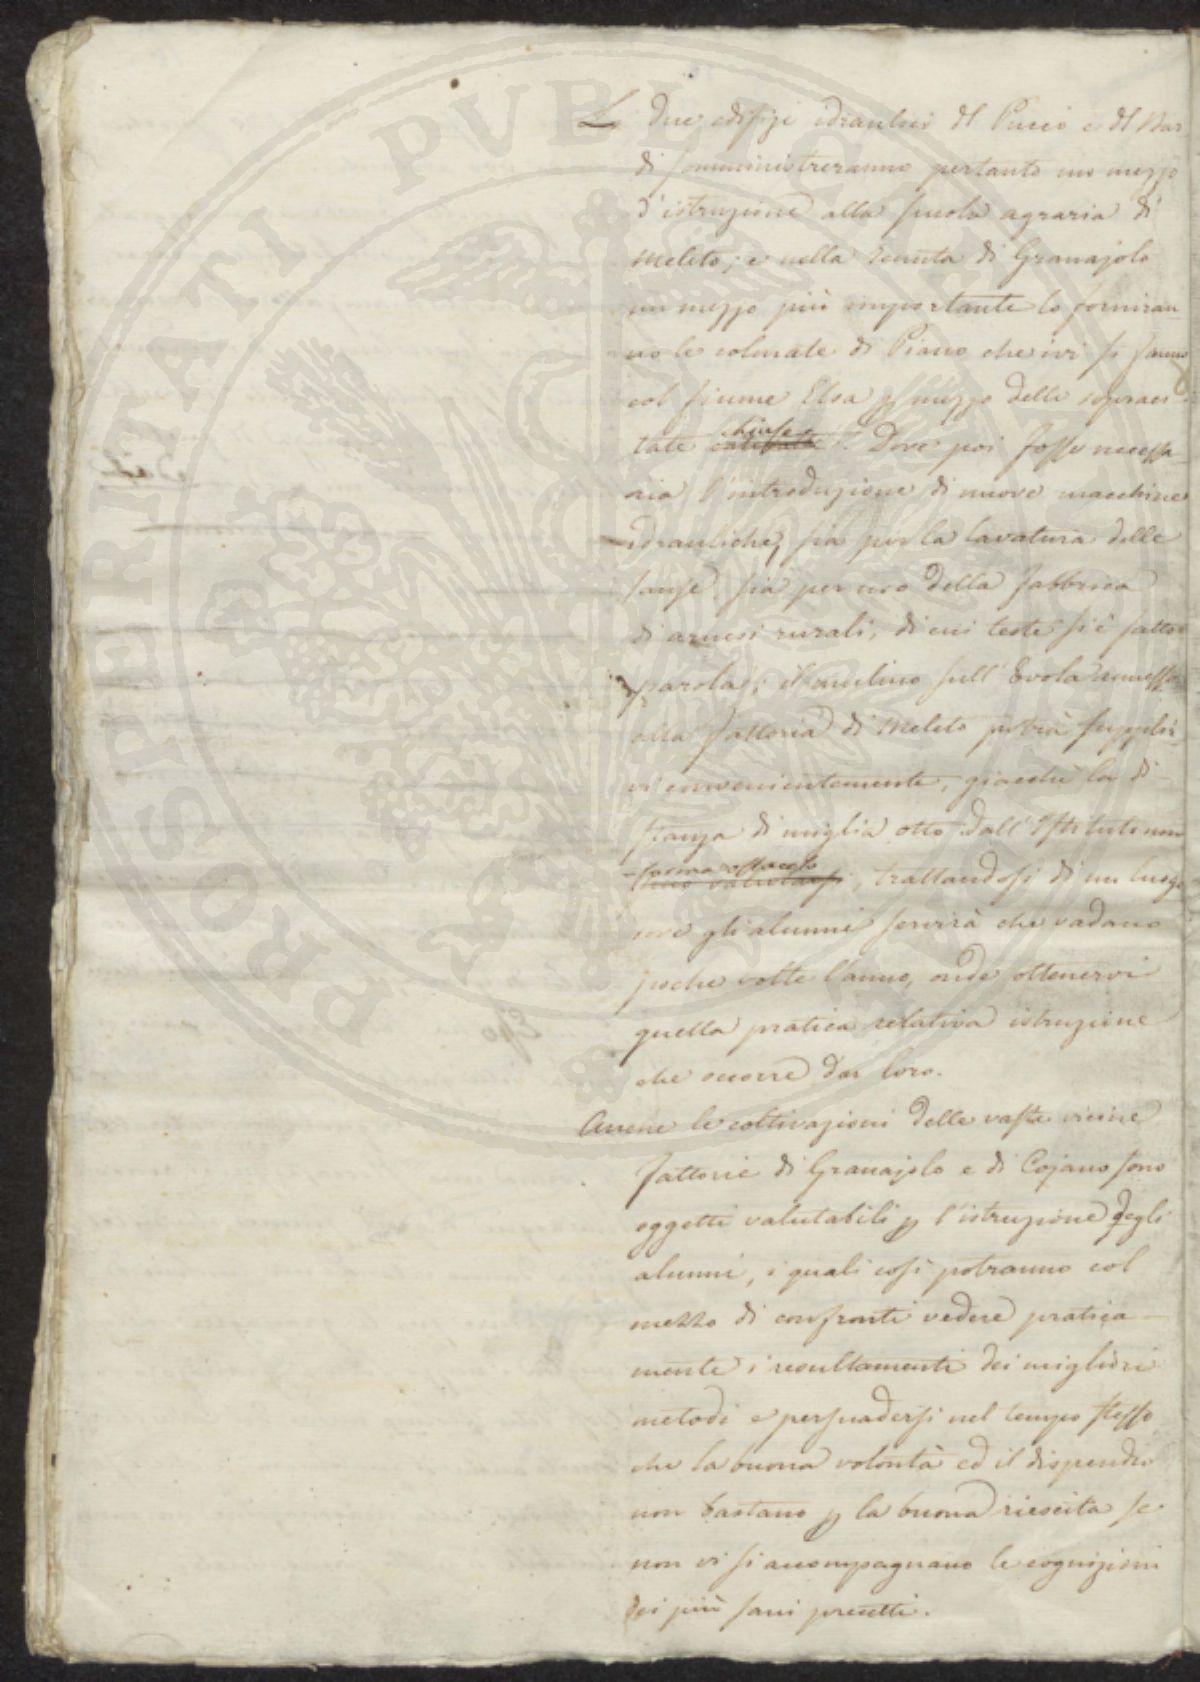 Li due edifizi idraulici del Puccio e del Bar
di somministreranno pertanto un mezzo
d'istruzione alla scuola agraria di
Meleto; e nella Tenuta di Granajolo
un mezzo più importante lo forniran-
no le colmate di Piano che ivi si fanno
col fiume Elsa p mezzo delle sopraci-
tate chiuse. Dove poi fosse necessa
ria l'introduzione di nuove macchine
idrauliche, sia per la lavatura delle
sanse, sia per uso della fabbrica
di arnesi rurali, di cui testè si è fatto
parola; il mulino sull'Evola annesso
alla fattoria di Meleto potrà supplir-
vi convenientemente, giacchè la di-
stanza di miglia otto dall'Istituto non
forma ostacolo, trattandosi di un luogo
ove gli alunni servirà che vadano
poche volte l'anno, onde ottenervi
quella pratica relativa istruzione
che occorre dar loro.
Anche le coltivazioni delle vaste vicine
fattorie di Granajolo e di Cojano sono
oggetti valutabili p l'istruzione degli
alunni, i quali così potranno col
mezzo di confronti vedere pratica-
mente i resultamenti dei migliori
metodi e persuadersi nel tempo stesso
che la buona volontà ed il dispendio
non bastano p la buona riescita se
non vi si accompagnano le cognizioni
dei più sani precetti.
PROSPERITATI PUBLICAE